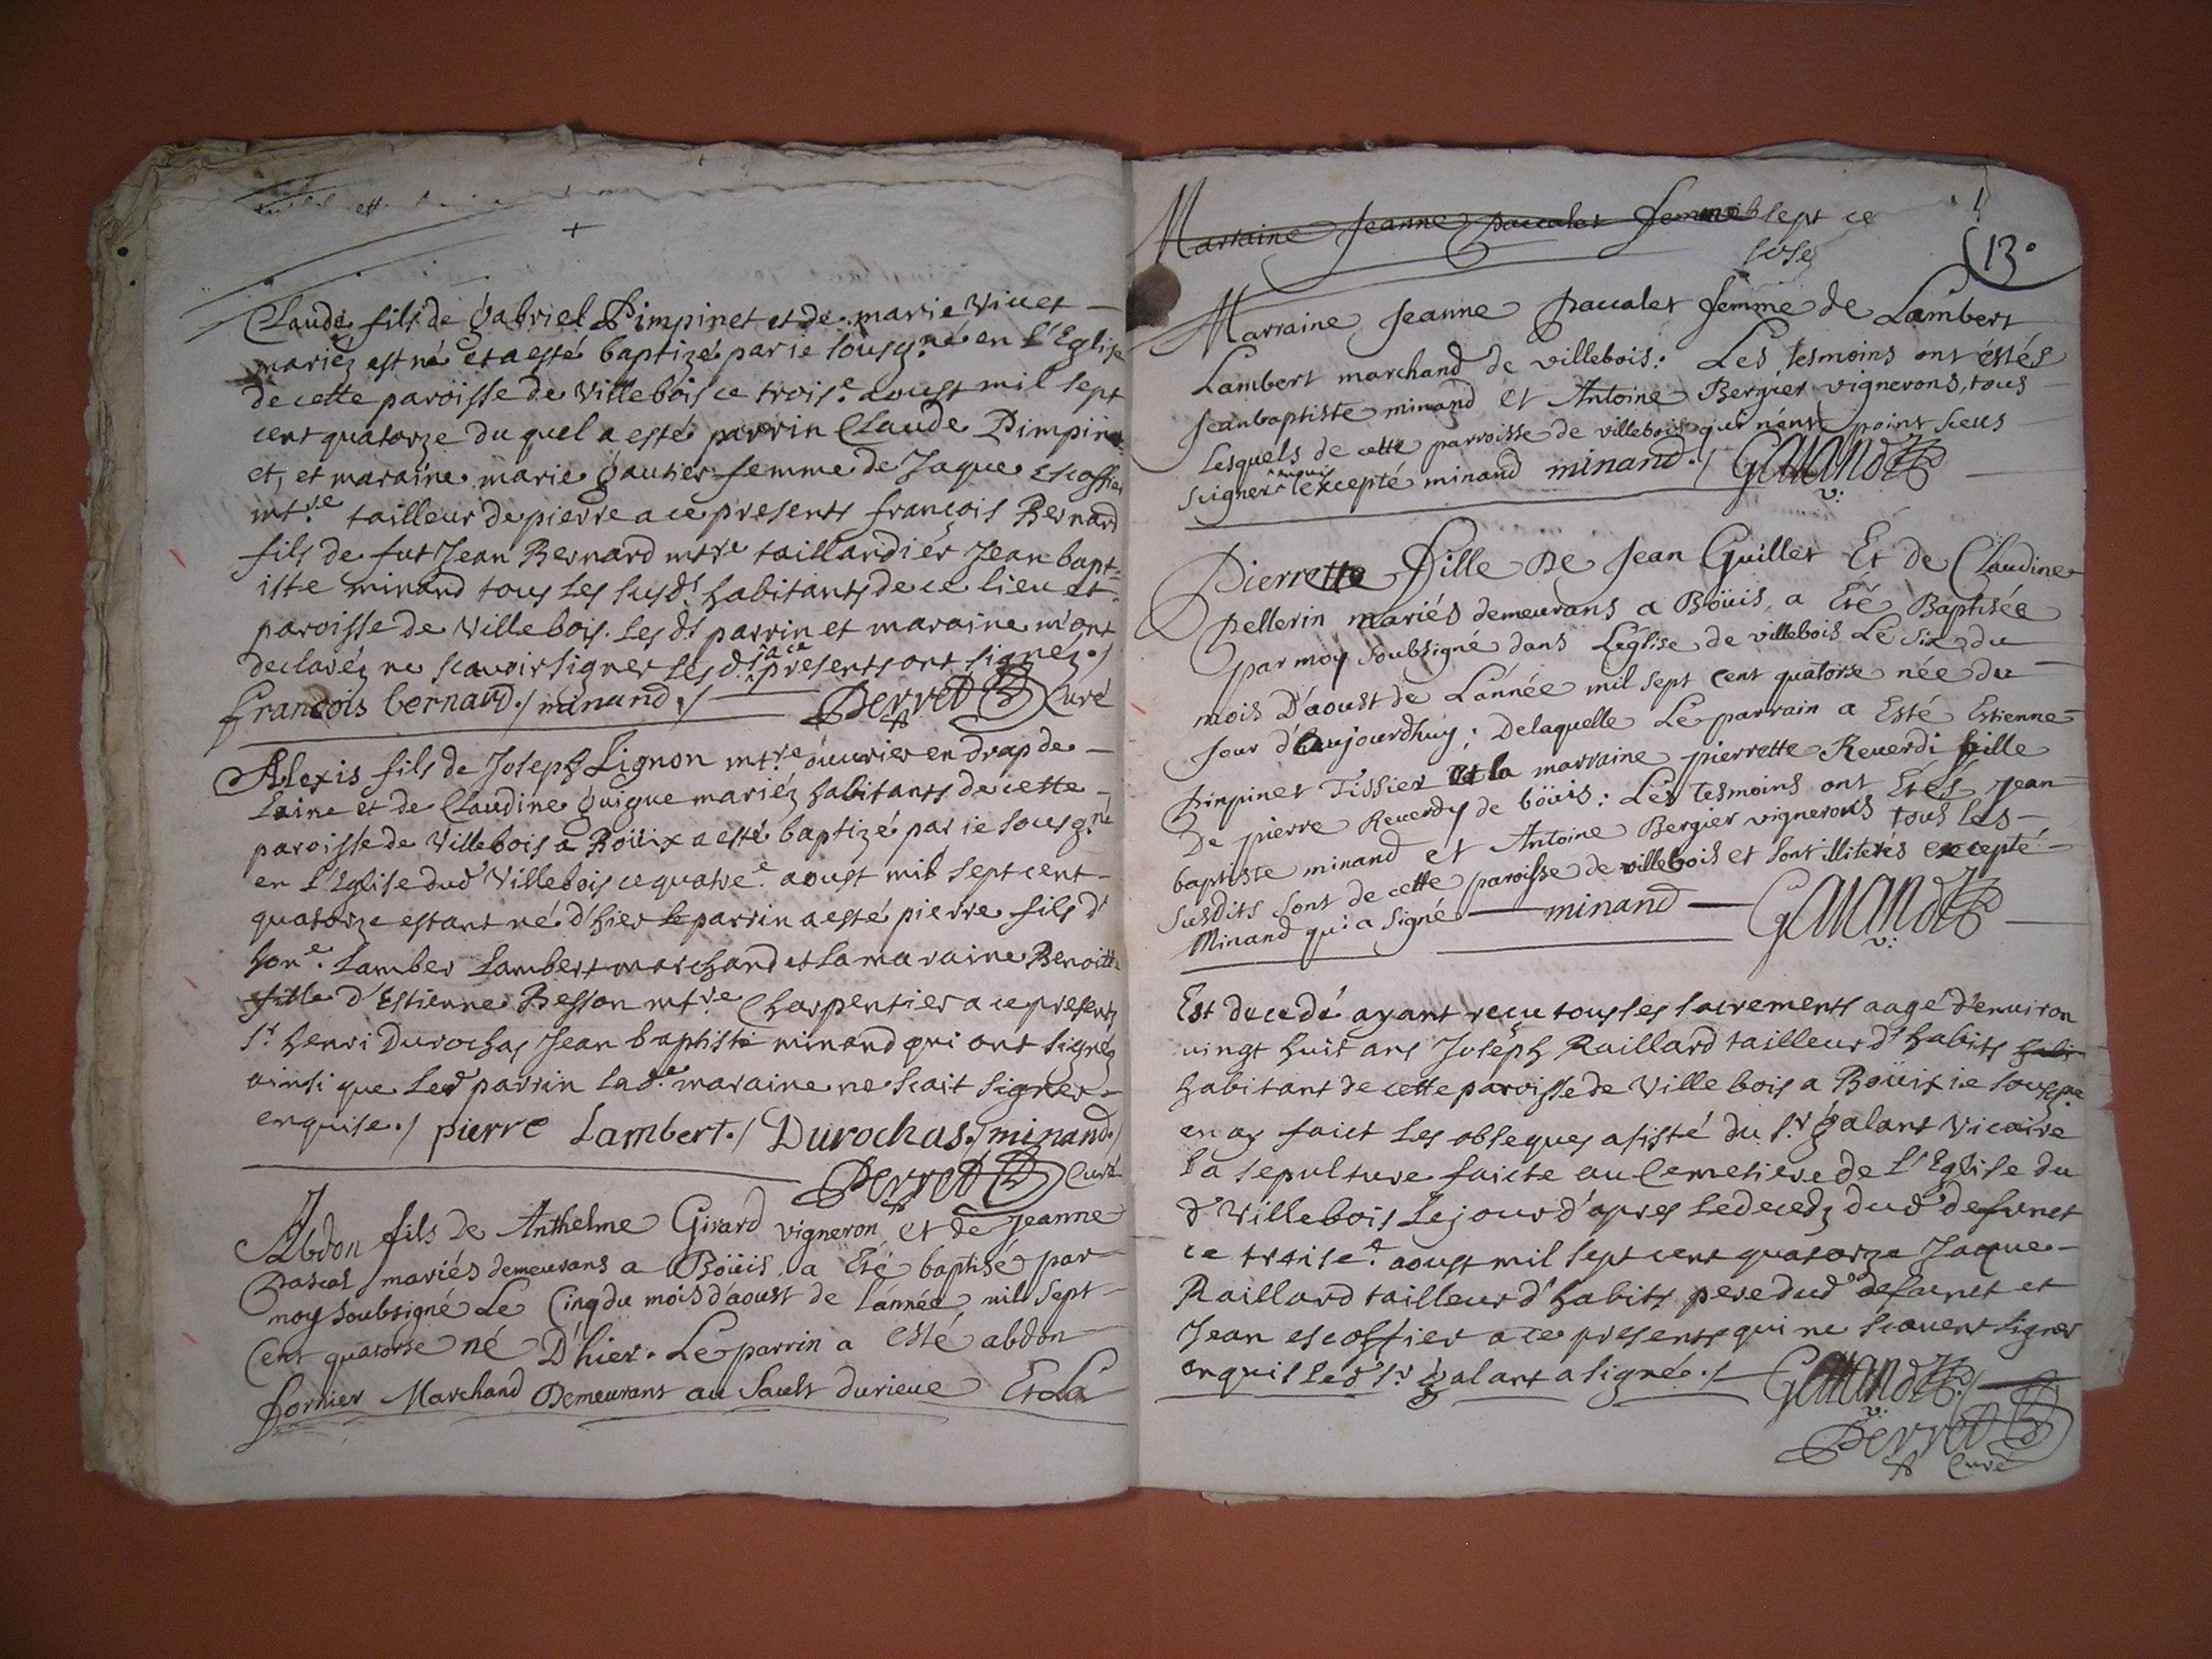 Claude fils de Gabriel Pimpinet et de marie Vivet
mariéz est né et a esté baptizé par ie sousg.né en l'Eglise
de cette paroisse de Villebois ce trois.e aoust mil sept
cent quatorze du quel a esté parrin Claude Pimpin-
et, et maraine marie Gautier femme de Jaque Escoffier
mtre tailleur de pierre a ce presents françois Bernard
fils de fut Jean Bernard mtre taillandiér Jean bapt=
iste minand tous les susd.s habitants de ce lieu et
paroisse de Villebois. les d.s parrin et maraine m'ont
declaréz ne scavoir signer les d.s a ce presents ont signez./
francois bernard./ minand./ Perret Curé
Alexis fils de Joseph Lignon mtre ouvrier en drap de
laine et de Claudine Guigue mariéz habitants de cette
paroisse de Villebois a Boüix a esté baptizé par ie sousg.né
en l'Eglise dud Villebois ce quatre.e aoust mil sept cent
quatorze estant né d'hier le parrin a esté pierre fils d'
hon.e Lamber Lambert marchand et la maraine Benoitte
fille d'Estienne Besson mtre Charpentier a ce presents
s.r henri Durochas Jean baptiste minand qui ont signéz
ainsi que led parrin lad.e maraine ne scait signer
enquise./ pierre Lambert./ Durochas./ minand./
Perret Curé
Abdon fils de Anthelme Girard vigneron et de Jeanne
Pascal mariés demeurans a Boüis a Eté baptisé par
moy soubsigné Le Cinq du mois d'aoust de l'année mil sept
Cent quatorse né D'hier. Le parrin a esté abdon
fornier Marchand Demeurant au Sault durieue Et la
Marraine Jeanne paccalet femme sept ce
13.
Marraine Jeanne paccalet femme de Lambert
Lambert marchand de villebois: Les tesmoins ont éstés
Jeanbaptiste minand et Antoine Bergier vignerons, tous
Lesquels de cette parroisse de villebois qui n'ont point sceus
signer enquis excepté minand minand./ Galand
v:
Pierrette Fille De Jean Guillet Et de Claudine
pellerin mariés demeurans a Boüis, a Eté Baptisée
par moy soubsigné dans L'église de villebois Le six du
mois D'aoust de L'année mil sept cent quatorse née du
Jour d'aujourdhuy; Delaquelle Le parrain a Esté Estienne
pinpinet Tissier Et la marraine pierrette Reverdi fille
De pierre Reverdy de böuis: Les tesmoins ont Etés Jean
baptiste minand et Antoine Bergier vignerons tous les
susdits sont de cette paroisse de villebois et sont illiterés excepté
Minand qui a signé minand Galand
v:
Est decedé ayant reçu tous les sacrements aagé d'environ
vingt huit ans Joseph Raillard tailleur d'habits habi
habitant de cette paroisse de Villebois a Boüix ie sousg.né
en ay faict les obseques asisté du s.r Galant Vicaire
la sepulture faicte au Cemetiere de l'Eglise du
d Villebois le jour d'apres le decedz dud defunct
ce treise.e aoust mil sept cent quatorze Jaque
Raillard tailleur d'habits pere dud defunct et
Jean escoffier a ce presents qui ne scavent signer
enquis led s.r Galant a signé./ Galand./
v:
Perret
Curé